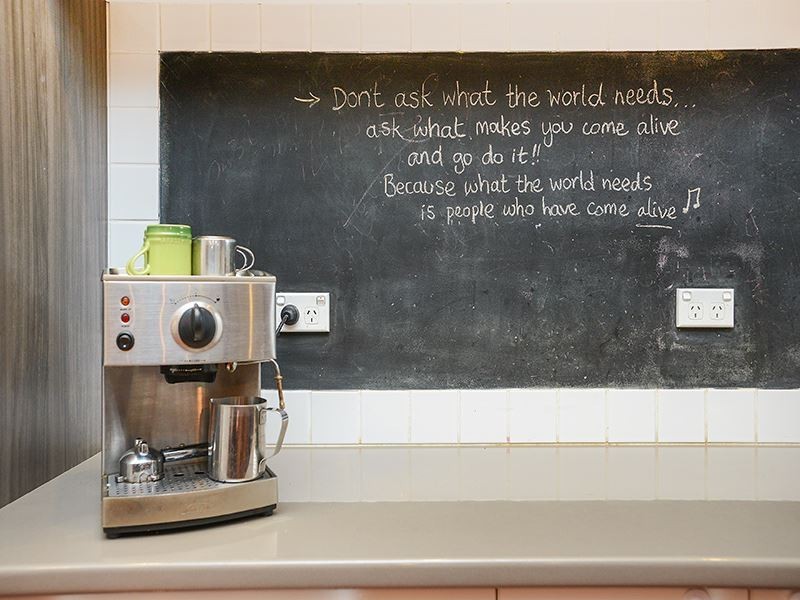 → Don't ask what the world needs...
ask what makes you come alive
and go do it!!
Because what the world needs
is people who have come alive ♫